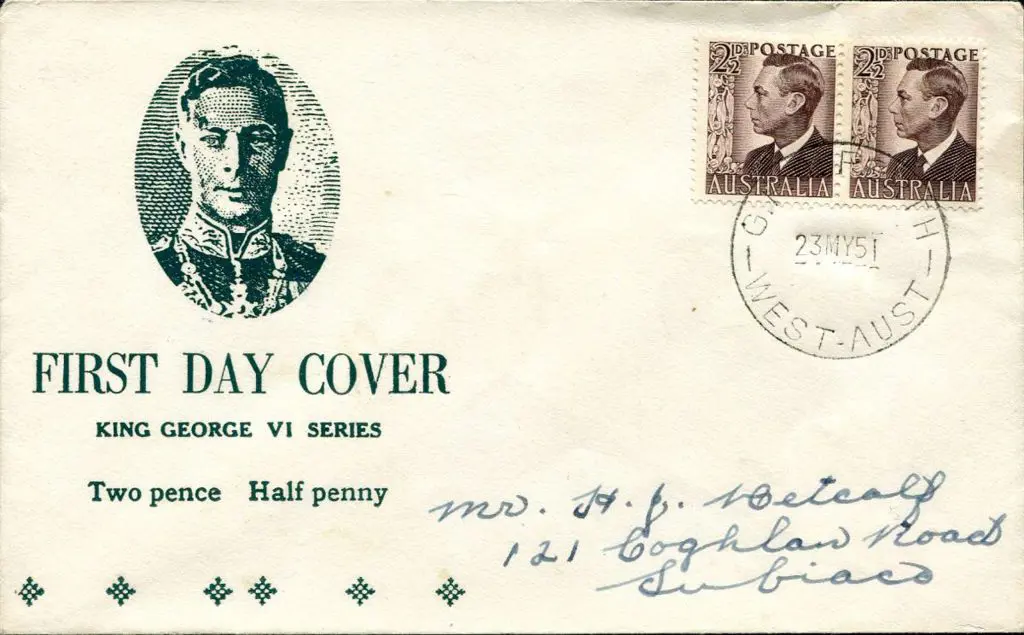 2½D. POSTAGE
AUSTRALIA
2½D. POSTAGE
AUSTRALIA
23MY51
WEST-AUST
FIRST DAY COVER
KING GEORGE VI SERIES
Two pence Half penny
Mr. H. J. Metcalf
121 Coghlan Road
Subiaco